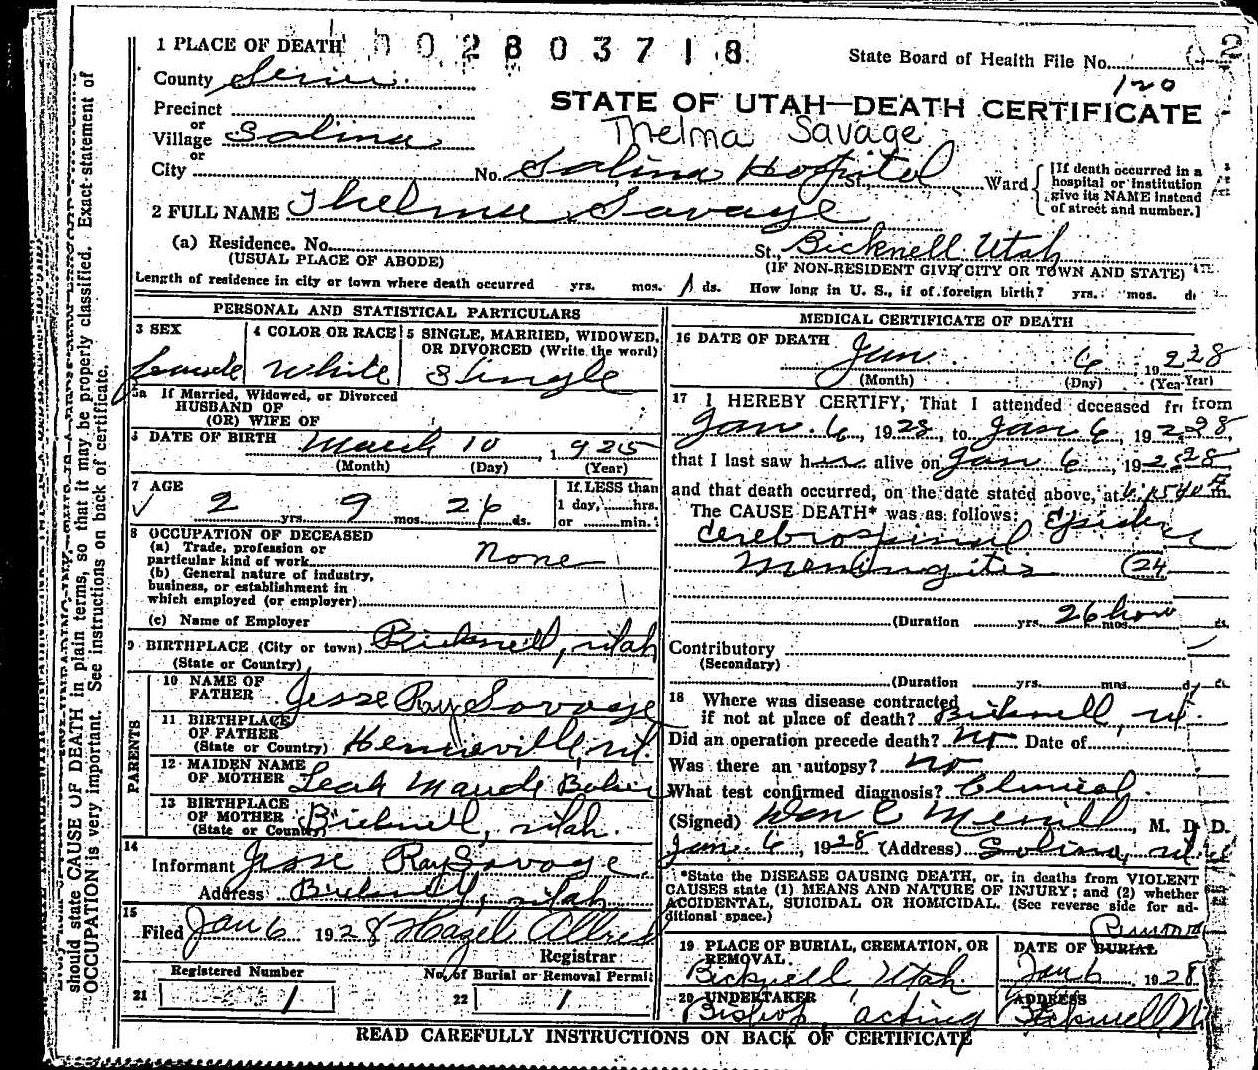 1 PLACE OF DEATH 002803718
State Board of Health File No. 2
120
County Sevier
STATE OF UTAH—DEATH CERTIFICATE
Precinct
or
Village Salina
Thelma Savage
or
City
No. Salina Hospital St., Ward
[If death occurred in a hospital or institution give its NAME instead of street and number.]
2 FULL NAME Thelma Savage
(a) Residence. No. St., Bicknell Utah
(USUAL PLACE OF ABODE) (IF NON-RESIDENT GIVE CITY OR TOWN AND STATE)
Length of residence in city or town where death occurred yrs. mos. 1 ds. How long in U. S., if of foreign birth? yrs. mos.
PERSONAL AND STATISTICAL PARTICULARS
3 SEX 4 COLOR OR RACE 5 SINGLE, MARRIED, WIDOWED,
OR DIVORCED (Write the word)
Female White Single
5a If Married, Widowed, or Divorced
HUSBAND OF
(OR) WIFE OF
DATE OF BIRTH March 10, 1925
(Month) (Day) (Year)
7 AGE
2 yrs. 9 mos. 26 ds.
If LESS than
1 day, hrs.
or min.
8 OCCUPATION OF DECEASED
(a) Trade, profession or
particular kind of work None
(b) General nature of industry,
business, or establishment in
which employed (or employer)
(c) Name of Employer
9 BIRTHPLACE (City or town) Bicknell, Utah
(State or Country)
PARENTS
10 NAME OF
FATHER Jesse Ray Savage
11 BIRTHPLACE
OF FATHER
(State or Country) Henrieville, Ut.
12 MAIDEN NAME
OF MOTHER Leah Maude Baker
13 BIRTHPLACE
OF MOTHER
(State or Country) Bicknell, Utah.
14
Informant Jesse Ray Savage
Address Bicknell, Utah
15
Filed Jan 6 1928 Hazel Allred
Registrar
Registered Number No. of Burial or Removal Permit
21 1 22 1
MEDICAL CERTIFICATE OF DEATH
16 DATE OF DEATH
Jan. 6, 19228
(Month) (Day) (Year)
17 I HEREBY CERTIFY, That I attended deceased from
Jan. 6, 1928, to Jan 6, 1928,
that I last saw her alive on Jan 6, 1928
and that death occurred, on the date stated above, at
The CAUSE DEATH* was as follows:
Cerebrospinal
Meningitis (24
(Duration yrs. mos. ds. 26 hour
Contributory
(Secondary)
(Duration yrs. mos. ds.
18 Where was disease contracted
if not at place of death? Bicknell, Ut.
Did an operation precede death? No Date of
Was there an autopsy? No
What test confirmed diagnosis? Clinical.
(Signed) Don C Merrill, M. D.
Jan 6, 1928 (Address) Salina, Ut
*State the DISEASE CAUSING DEATH, or, in deaths from VIOLENT
CAUSES state (1) MEANS AND NATURE OF INJURY; and (2) whether
ACCIDENTAL, SUICIDAL OR HOMICIDAL. (See reverse side for ad-
ditional space.)
19 PLACE OF BURIAL, CREMATION, OR
REMOVAL.
Bicknell, Utah.
DATE OF BURIAL
Jan 6 1928
20 UNDERTAKER
Bishop acting
ADDRESS
Bicknell
READ CAREFULLY INSTRUCTIONS ON BACK OF CERTIFICATE
should state CAUSE OF DEATH in plain terms, so that it may be properly classified. Exact statement of
OCCUPATION is very important. See instructions on back of certificate.